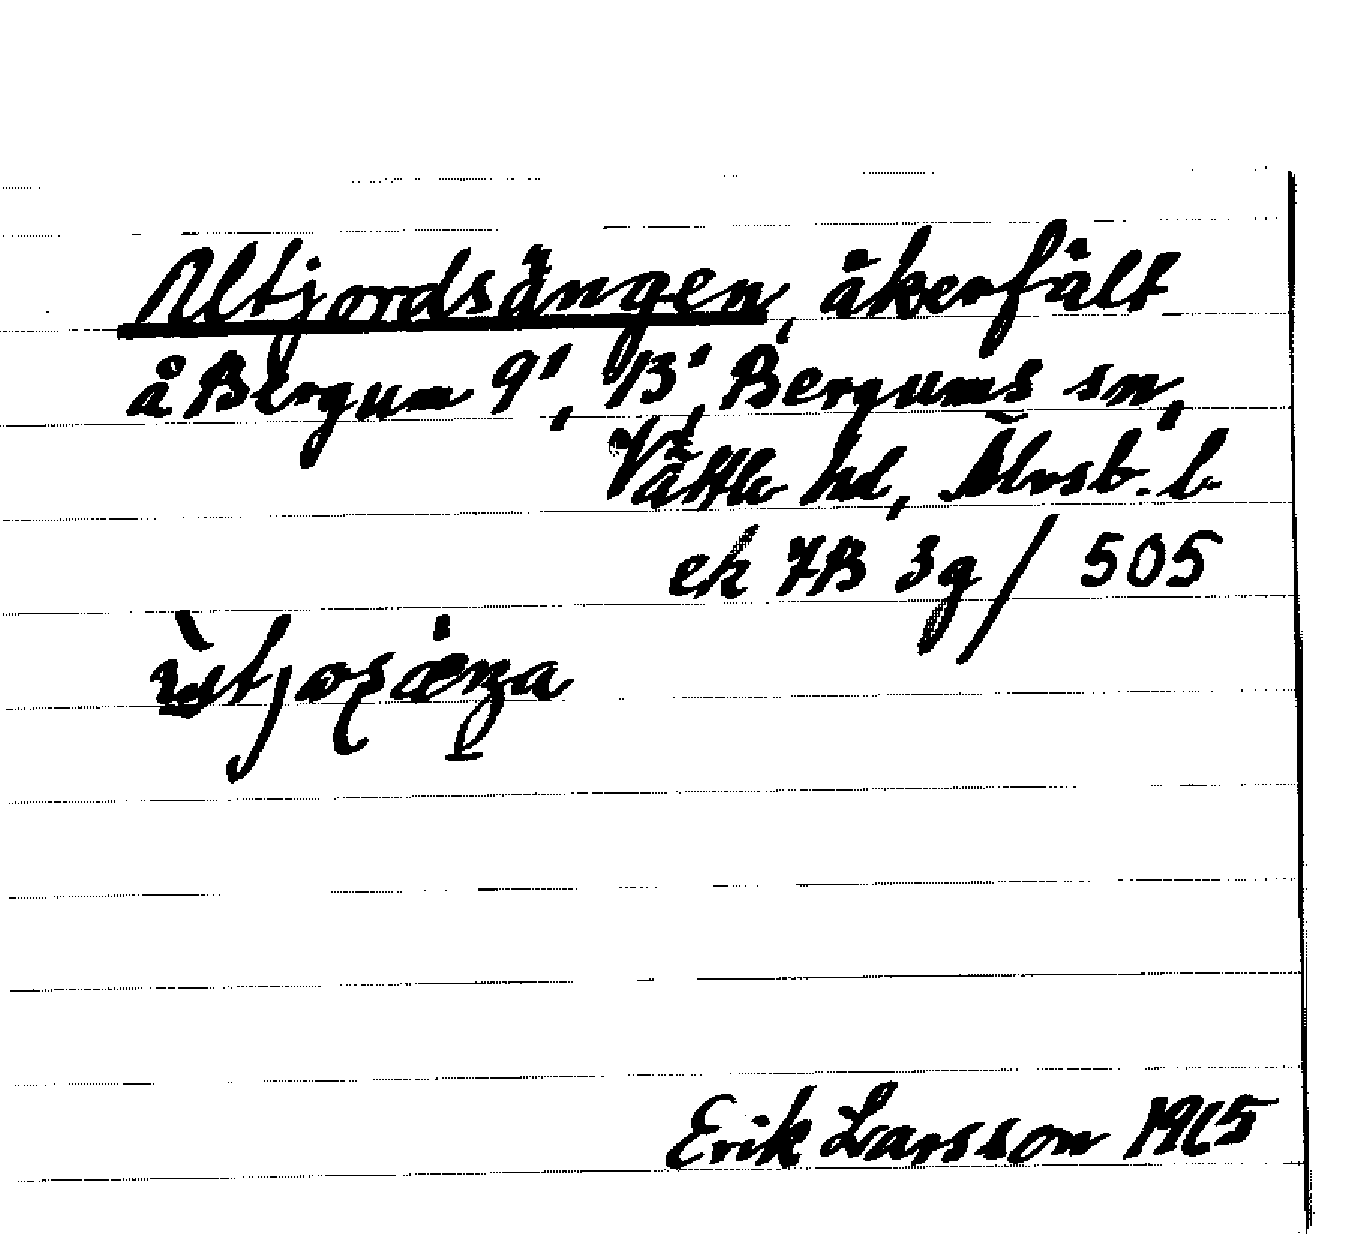 Utjordsängen, åkerfält
å Bergum 9¹, 13¹, Bergums sn,
Vättle hd, Älvsb. l.
ek 7B 3g / 505
Erik Larsson 1965